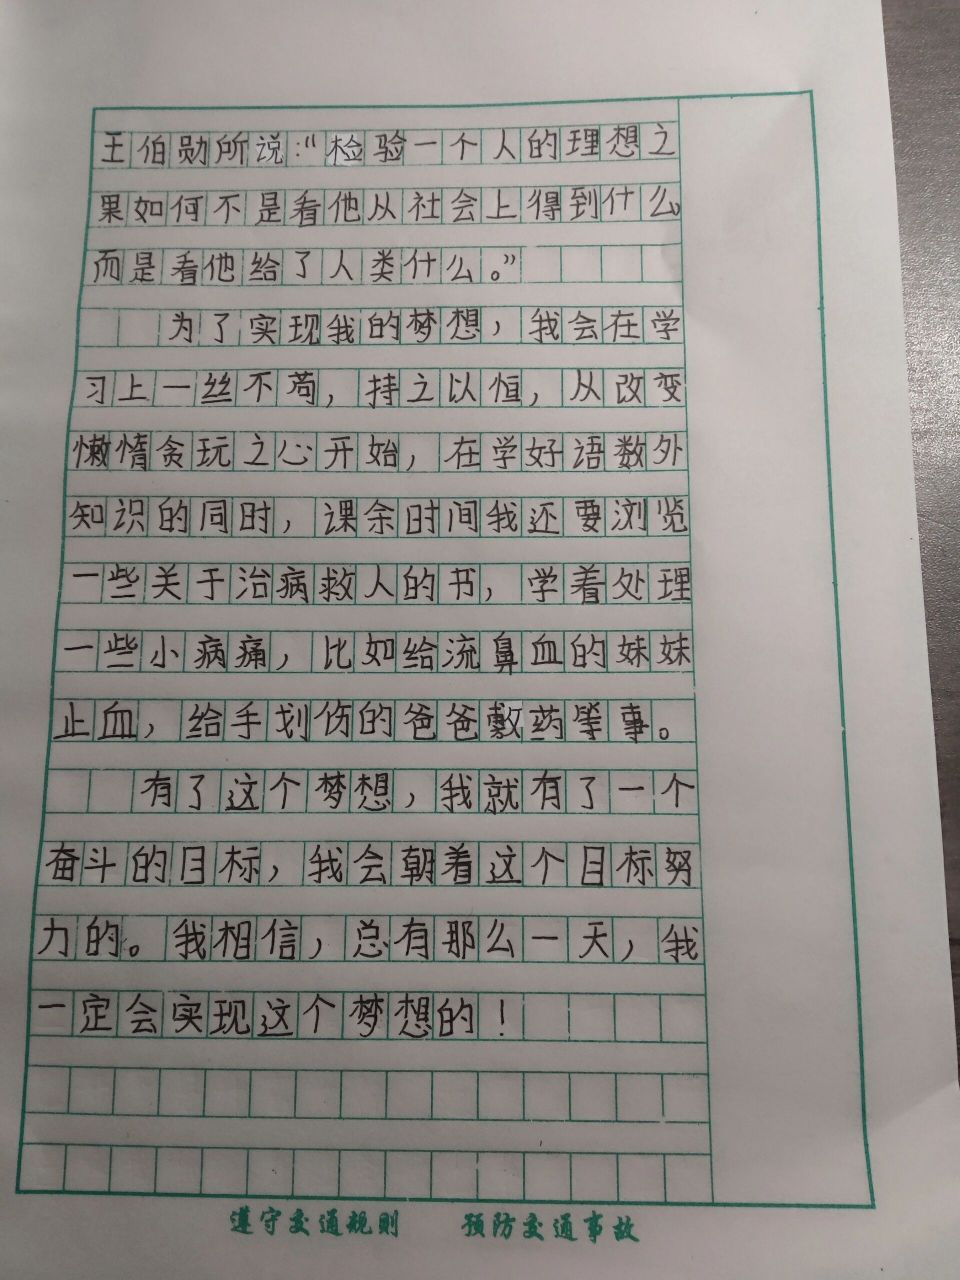 王伯勋所说：“检验一个人的理想之
果如何不是看他从社会上得到什么
而是看他给了人类什么。”
为了实现我的梦想，我会在学
习上一丝不苟，持之以恒，从改变
懒惰贪玩之心开始，在学好语数外
知识的同时，课余时间我还要浏览
一些关于治病救人的书，学着处理
一些小病痛，比如给流鼻血的妹妹
止血，给手划伤的爸爸敷药等事。
有了这个梦想，我就有了一个
奋斗的目标，我会朝着这个目标努
力的。我相信，总有那么一天，我
一定会实现这个梦想的！
遵守交通规则 预防交通事故